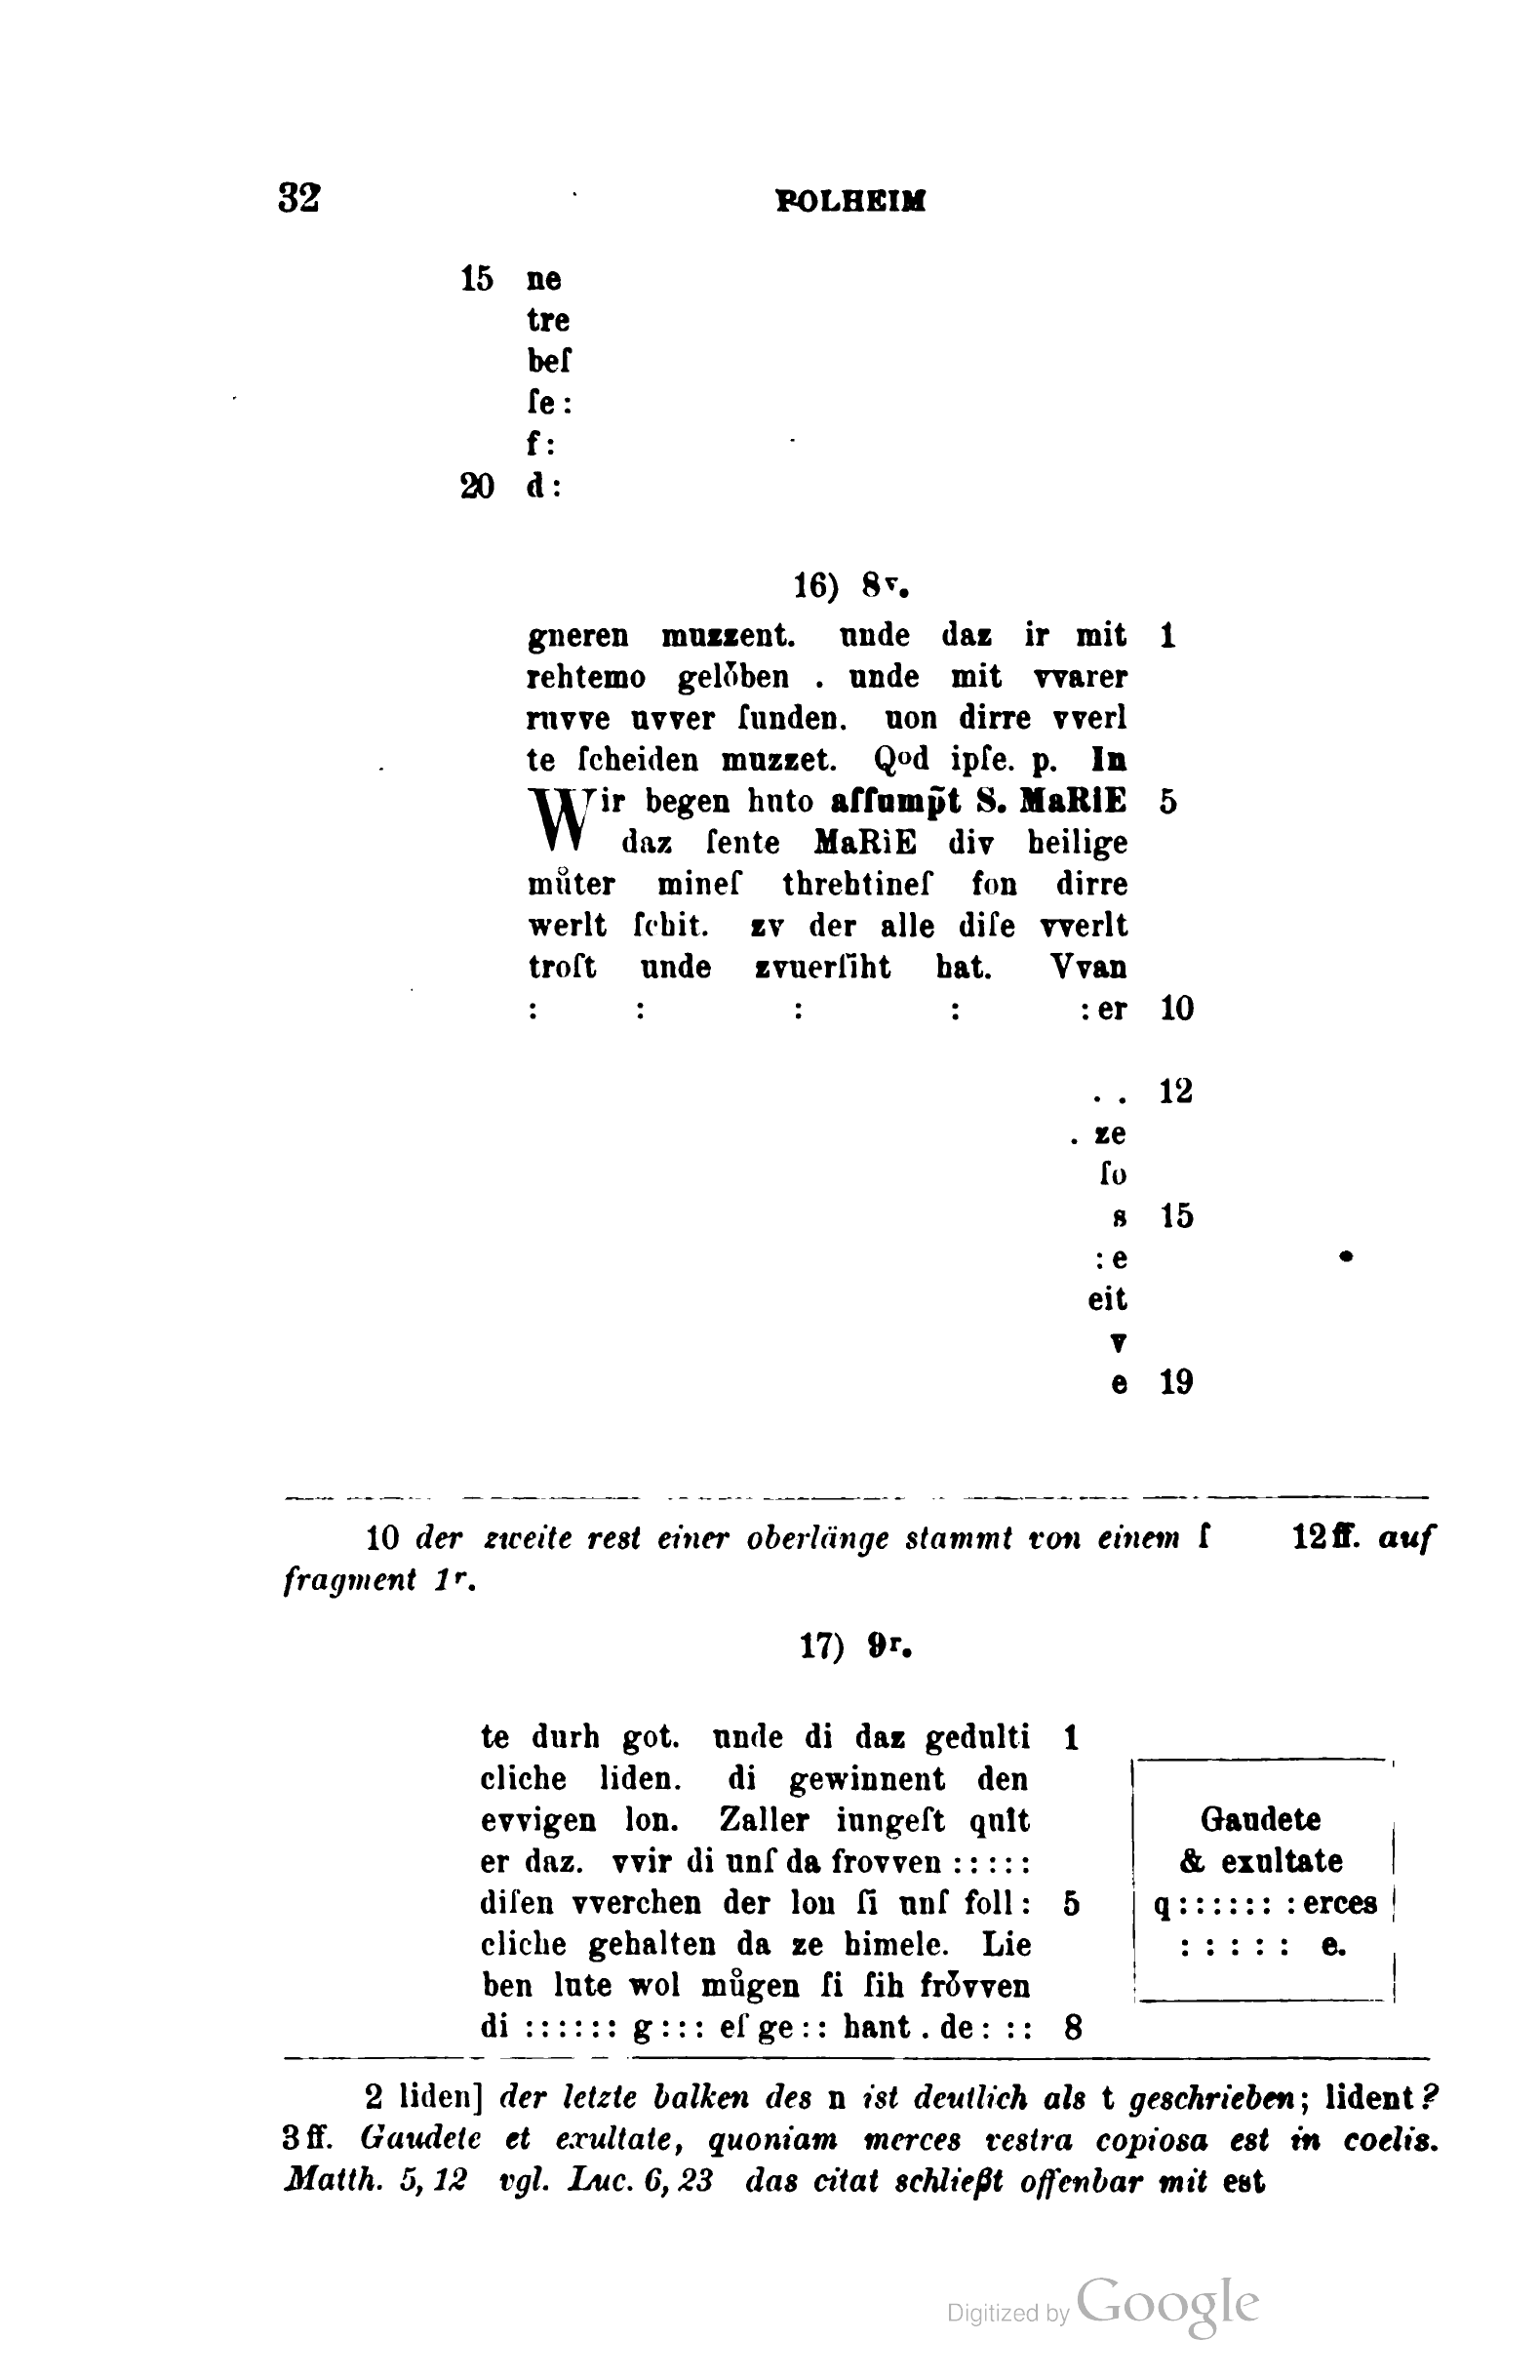 32 POLHEIM
15 ne
tre
beſ
ſe :
f :
20 d :
16) 8v.
gneren muzzent. unde daz ir mit 1
rehtemo gelŏben . unde mit vvarer
ruvve uvver ſunden. uon dirre vverl
te ſcheiden muzzet. Qod ipſe. p. In
Wir begen huto aſſump̃t S. MaRiE 5
daz ſente MaRiE div heilige
můter mineſ threhtineſ fon dirre
werlt ſchit. zv der alle diſe vverlt
troſt unde zvuerſiht hat. Vvan
: : : : : er 10
. . 12
. ze
ſo
s 15
: e
eit
v
e 19
10 der zweite rest einer oberlänge stammt von einem ſ 12 ff. auf
fragment 1r.
17) 9r.
te durh got. unde di daz gedulti 1
cliche liden. di gewinnent den
evvigen lon. Zaller iungeſt quit Gaudete
er daz. vvir di unſ da frovven : : : : : & exultate
diſen vverchen der lon ſi unſ foll : 5 q : : : : : : : erces
cliche gehalten da ze himele. Lie : : : : : e.
ben lute wol můgen ſi ſih frŏvven
di : : : : : : g : : : eſ ge : : hant . de : : : 8
2 liden] der letzte balken des n ist deutlich als t geschrieben; lident?
3 ff. Gaudete et exultate, quoniam merces vestra copiosa est in coelis.
Matth. 5, 12 vgl. Luc. 6, 23 das citat schließt offenbar mit est
Digitized by Google